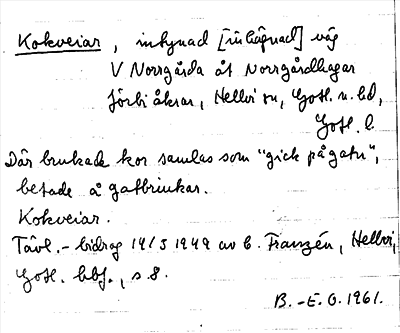 Kokveiar, inhynad [inhägnad] väg
V Norrgårda åt Norrgårdhagar
förbi åkrar, Hellvi sn, Gotl. n. hd,
Gotl. l.
Där brukade kor samlas som "gick på gatu",
betade å gatbrinkar.
Kokveiar.
Tävl.-bidrag 14/5 1949 av C. Franzén, Hellvi,
Gotl. hbf., s. 8.
B.-E. O. 1961.